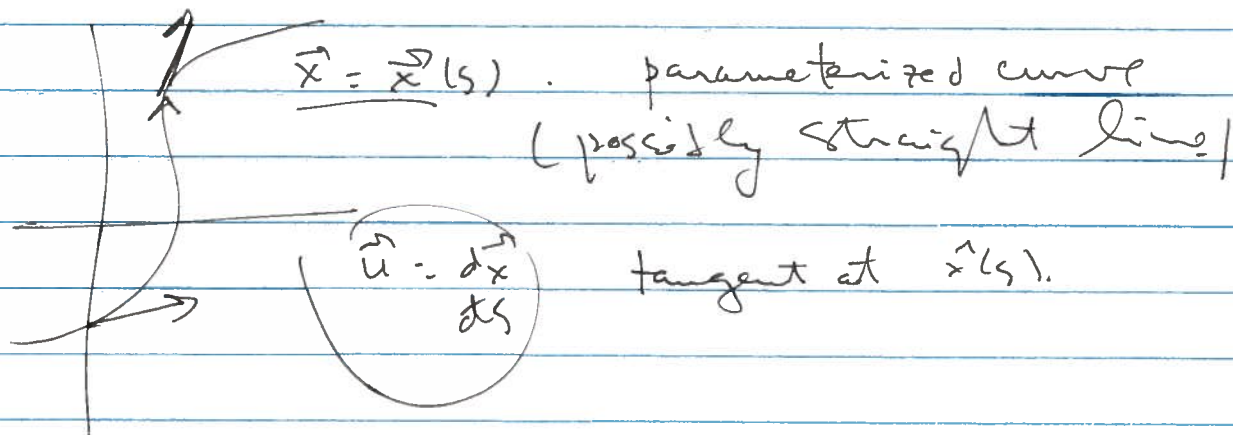 x⃗ = x⃗(s) . parameterized curve
(possibly straight line)
u⃗ = dx⃗/ds tangent at x⃗(s).